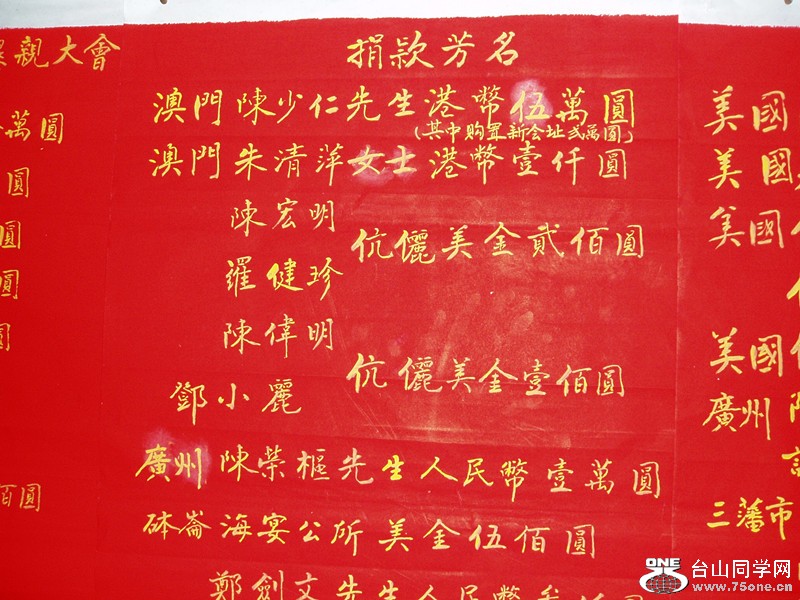 親大會
萬圓
圓
圓
圓
圓
佰圓
捐款芳名
澳門陳少仁先生港幣伍萬圓
(其中购置新会址弍萬圓)
澳門朱清萍女士港幣壹仟圓
陳宏明
伉儷美金貳佰圓
羅健珍
陳偉明
伉儷美金壹佰圓
鄧小麗
廣州陳榮樞先生人民幣壹萬圓
砵崙海宴公所美金伍佰圓
鄭劍文先生人民幣
美國
美國
美國
美國
廣州
三藩市
ONE
台山同学网
www.75one.cn